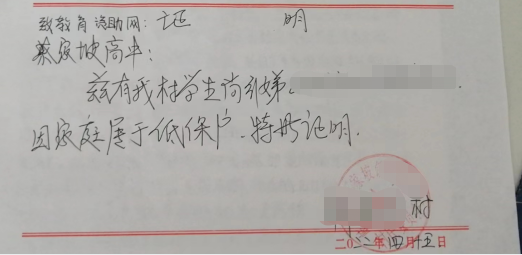 致教育资助网：证 明
蔡家坡高中：
兹有我村学生尚引娣、
因家庭属于低保户、特此证明.
村
二0二二年四月十五日